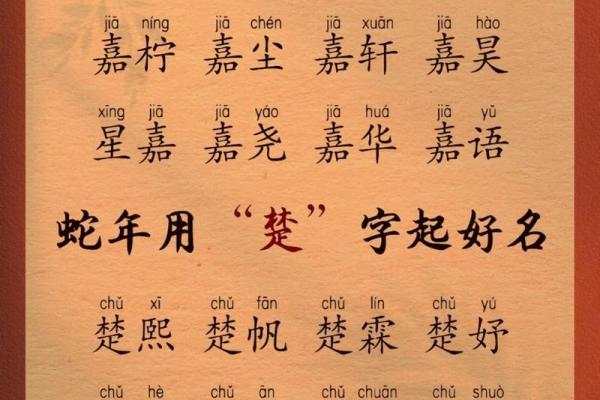 jiā níng jiā chén jiā xuān jiā hào
嘉柠 嘉尘 嘉轩 嘉昊
xīng jiā jiā yáo jiā huá jiā yǔ
星嘉 嘉尧 嘉华 嘉语
蛇年用“楚”字起好名
chǔ xī chǔ fān chǔ lín chǔ yú
楚熙 楚帆 楚霖 楚妤
chǔ hè chǔ ān chǔ chuān chǔ shuò